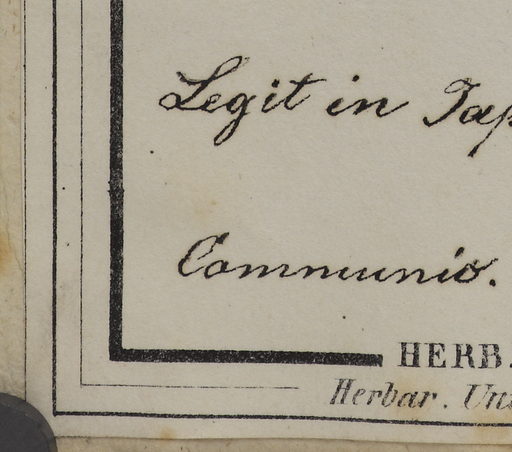 Legit in Jap
Communio.
HERB.
Herbar. Uni